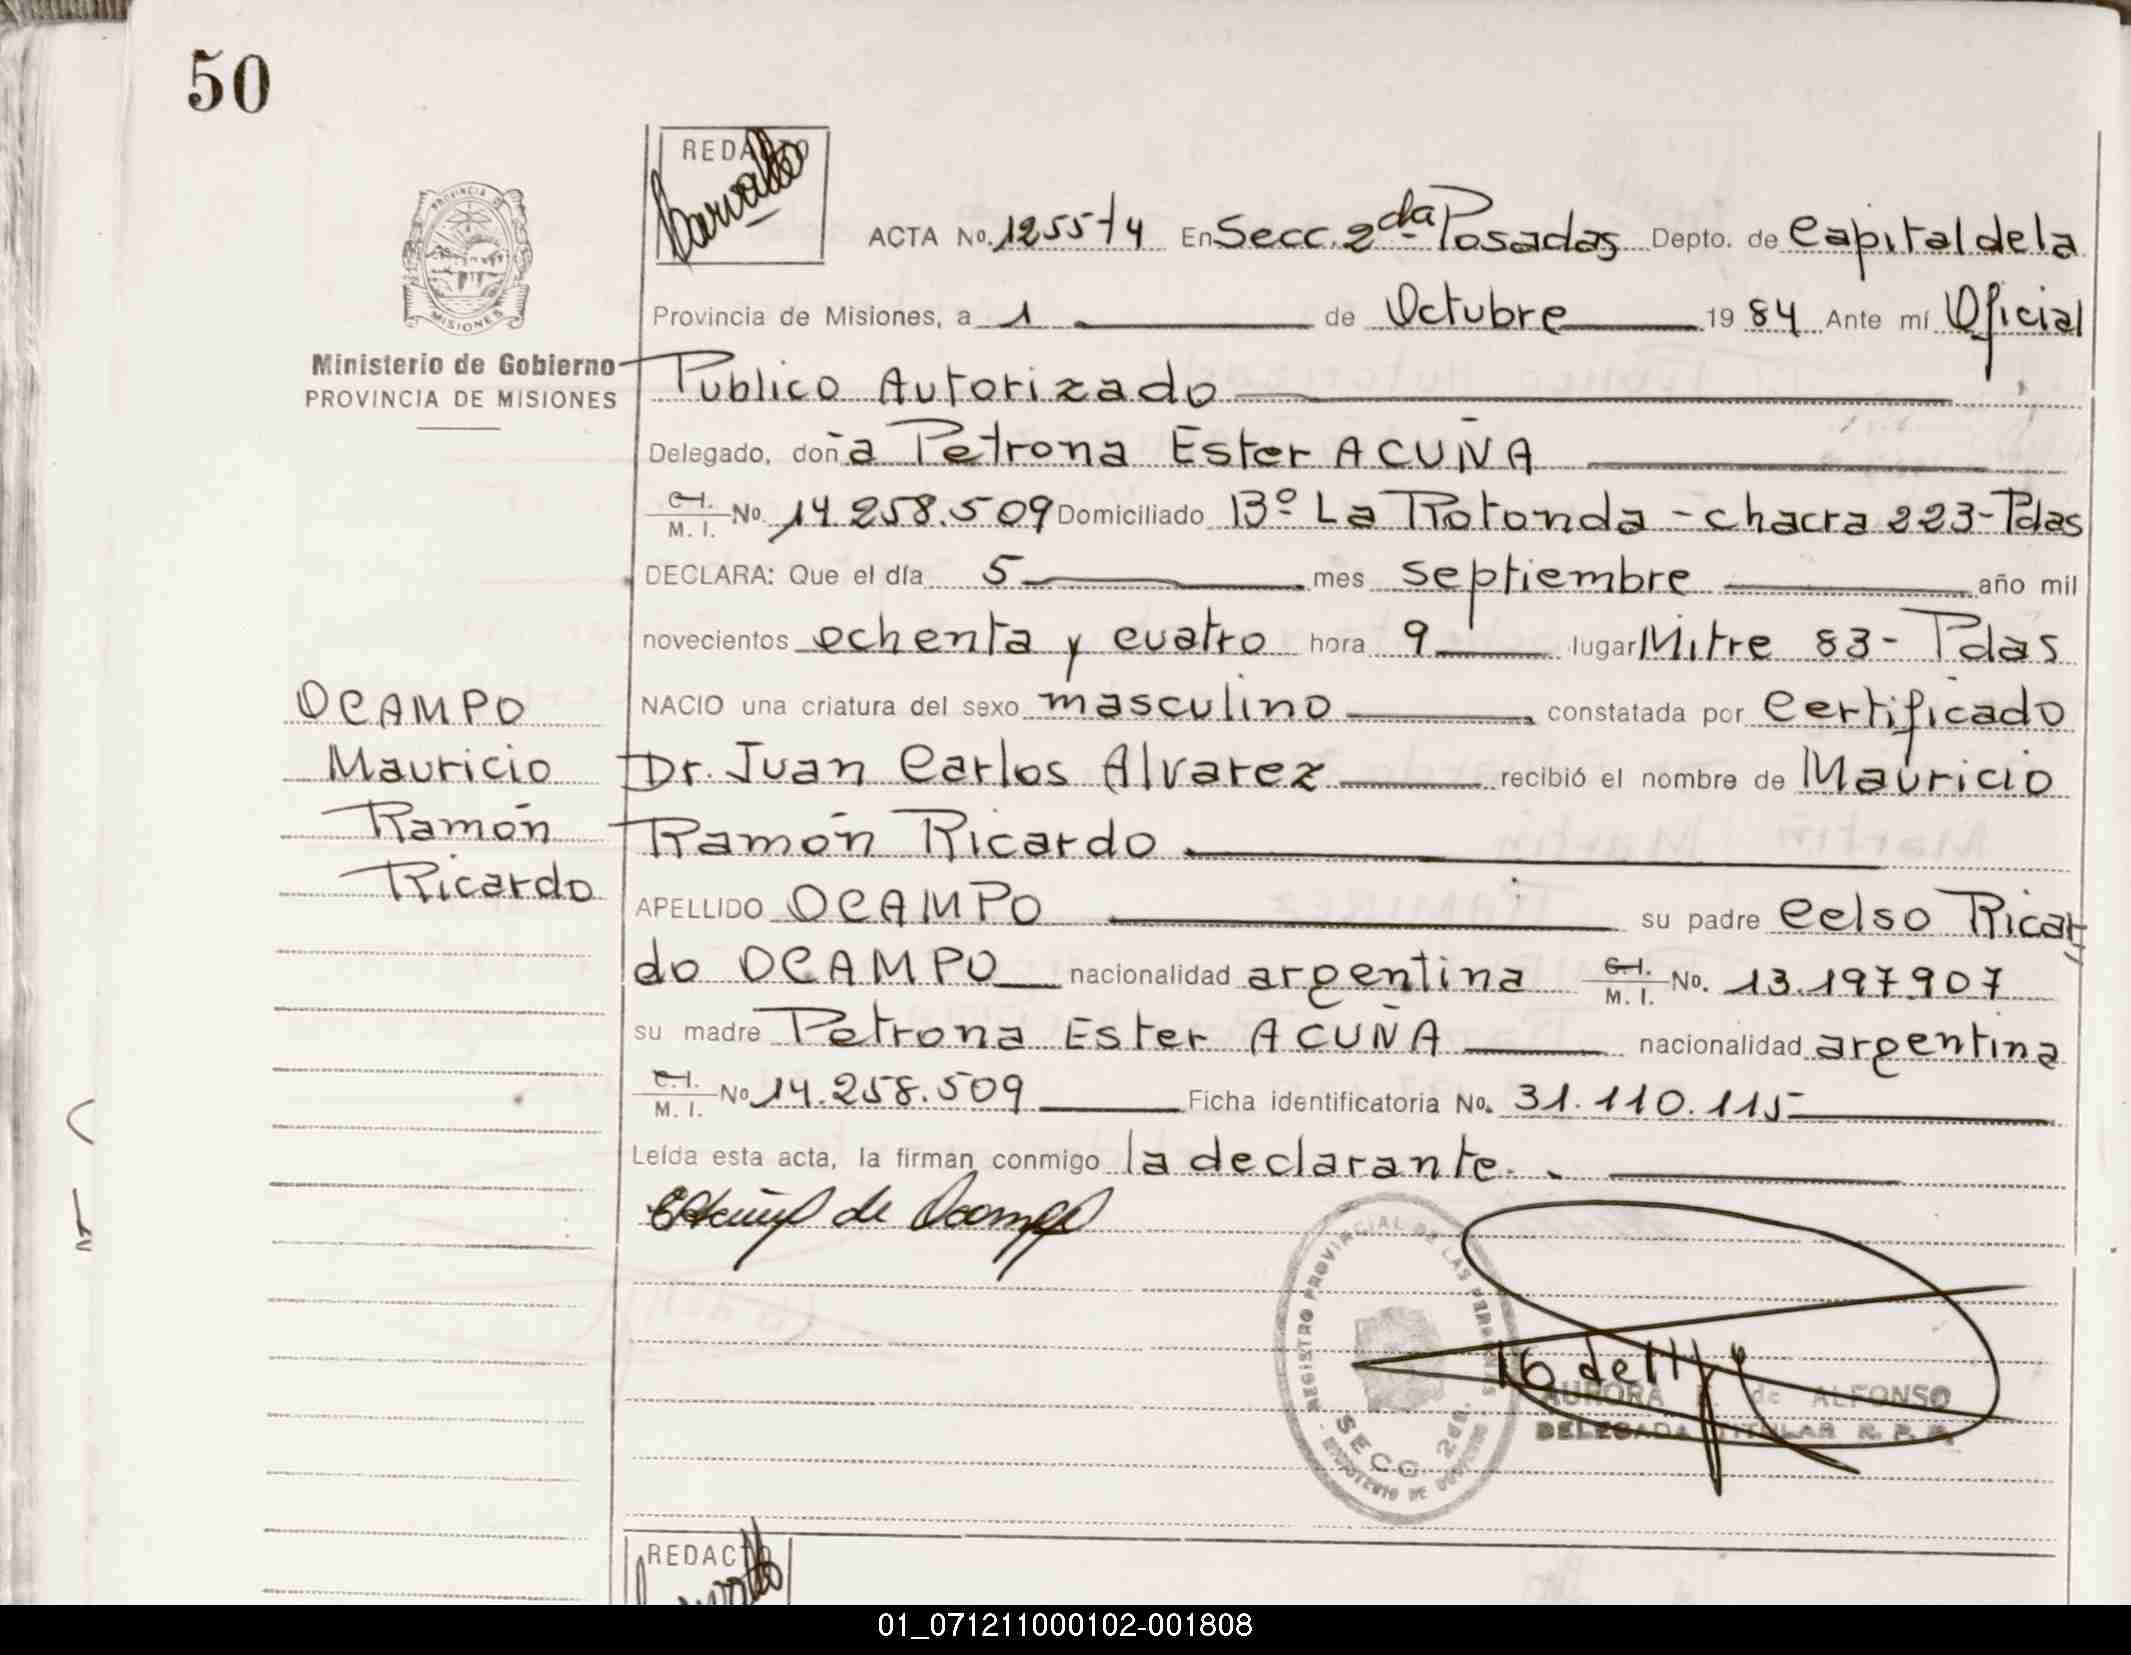 50
REDACTO
ACTA No. 1255 t4 En Secc. 2da Posadas Depto. de Capital de la
Provincia de Misiones, a 1 de Octubre 19 84 Ante mí Oficial
Ministerio de Gobierno
PROVINCIA DE MISIONES
MISIONES
Publico Autorizado
Delegado, doña Petrona Ester ACUÑA
C.I. M. I. No. 14.258.509 Domiciliado Bº La Rotonda - chacra 223 - Pdas
DECLARA: Que el día 5 mes septiembre año mil
novecientos ochenta y cuatro hora 9 lugar Mitre 83 - Pdas
NACIO una criatura del sexo masculino constatada por Certificado
Dr. Juan Carlos Alvarez recibió el nombre de Mauricio
Ramón Ricardo
OCAMPO
Mauricio
Ramón
Ricardo
APELLIDO OCAMPO su padre Celso Ricar
do OCAMPO nacionalidad argentina C.I. M. I. No. 13.197.907
su madre Petrona Ester ACUÑA nacionalidad argentina
C.I. M. I. No 14.258.509 Ficha identificatoria No. 31.110.115
Leída esta acta, la firman conmigo la declarante.
de Ocampo
REGISTRO PROVINCIAL DE LAS PERSONAS
SECC. 2da.
MINISTERIO DE GOBIERNO
AURORA de ALFONSO
DELEGADA TITULAR R. P. P.
REDACTO
01_071211000102-001808